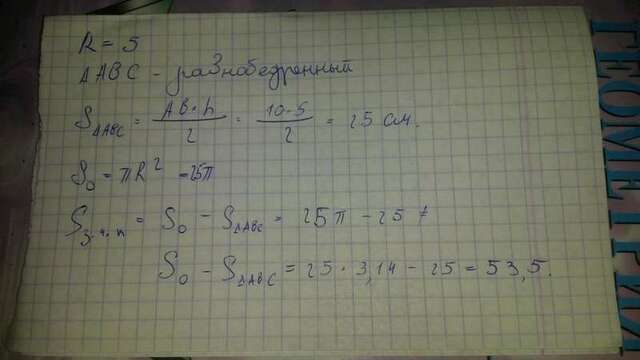 R = 5
ΔABC - равнобедренный
S_ΔABC = AB·h/2 = 10·5/2 = 25 см.
S_0 = πR² = 25π
S_з.ч.п = S_0 - S_ΔABC = 25π - 25 ≠
S_0 - S_ΔABC = 25 · 3,14 - 25 = 53,5.
ГЕОМЕТРИЯ